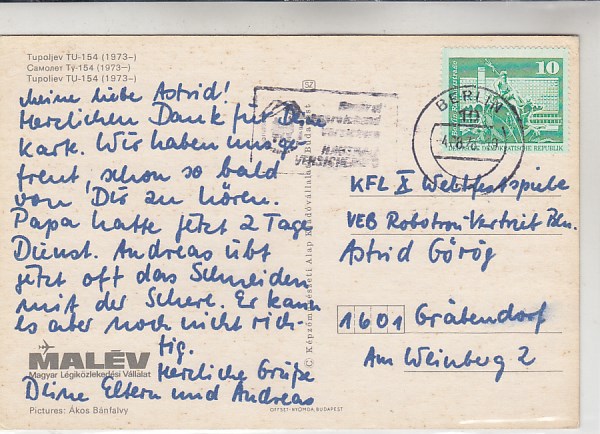 Tupoljev TU-154 (1973–)
Самолет Tÿ-154 (1973–)
Tupoliev TU-154 (1973–)
Meine liebe Astrid!
Herzlichen Dank für Deine
Karte. Wir haben uns ge-
freut, schon so bald
von Dir zu hören.
Papa hatte jetzt 2 Tage
Dienst. Andreas übt
jetzt oft das Schneiden
mit der Schere. Er kann
es aber noch nicht rich-
tig.
Herzliche Grüße
Deine Eltern und Andreas
MALÉV
Magyar Légiközlekedési Vállalat
Pictures: Ákos Bánfalvy
SZ
(C) Képzőművészeti Alap Kiadóvállalata, Budapest
OFFSET-NYOMDA, BUDAPEST
BERLIN
10
DEUTSCHE DEMOKRATISCHE REPUBLIK
KFL X Weltfestspiele
VEB Robotron-Vertrieb Bln.
Astrid Görög
1601 Gräbendorf
Am Weinberg 2